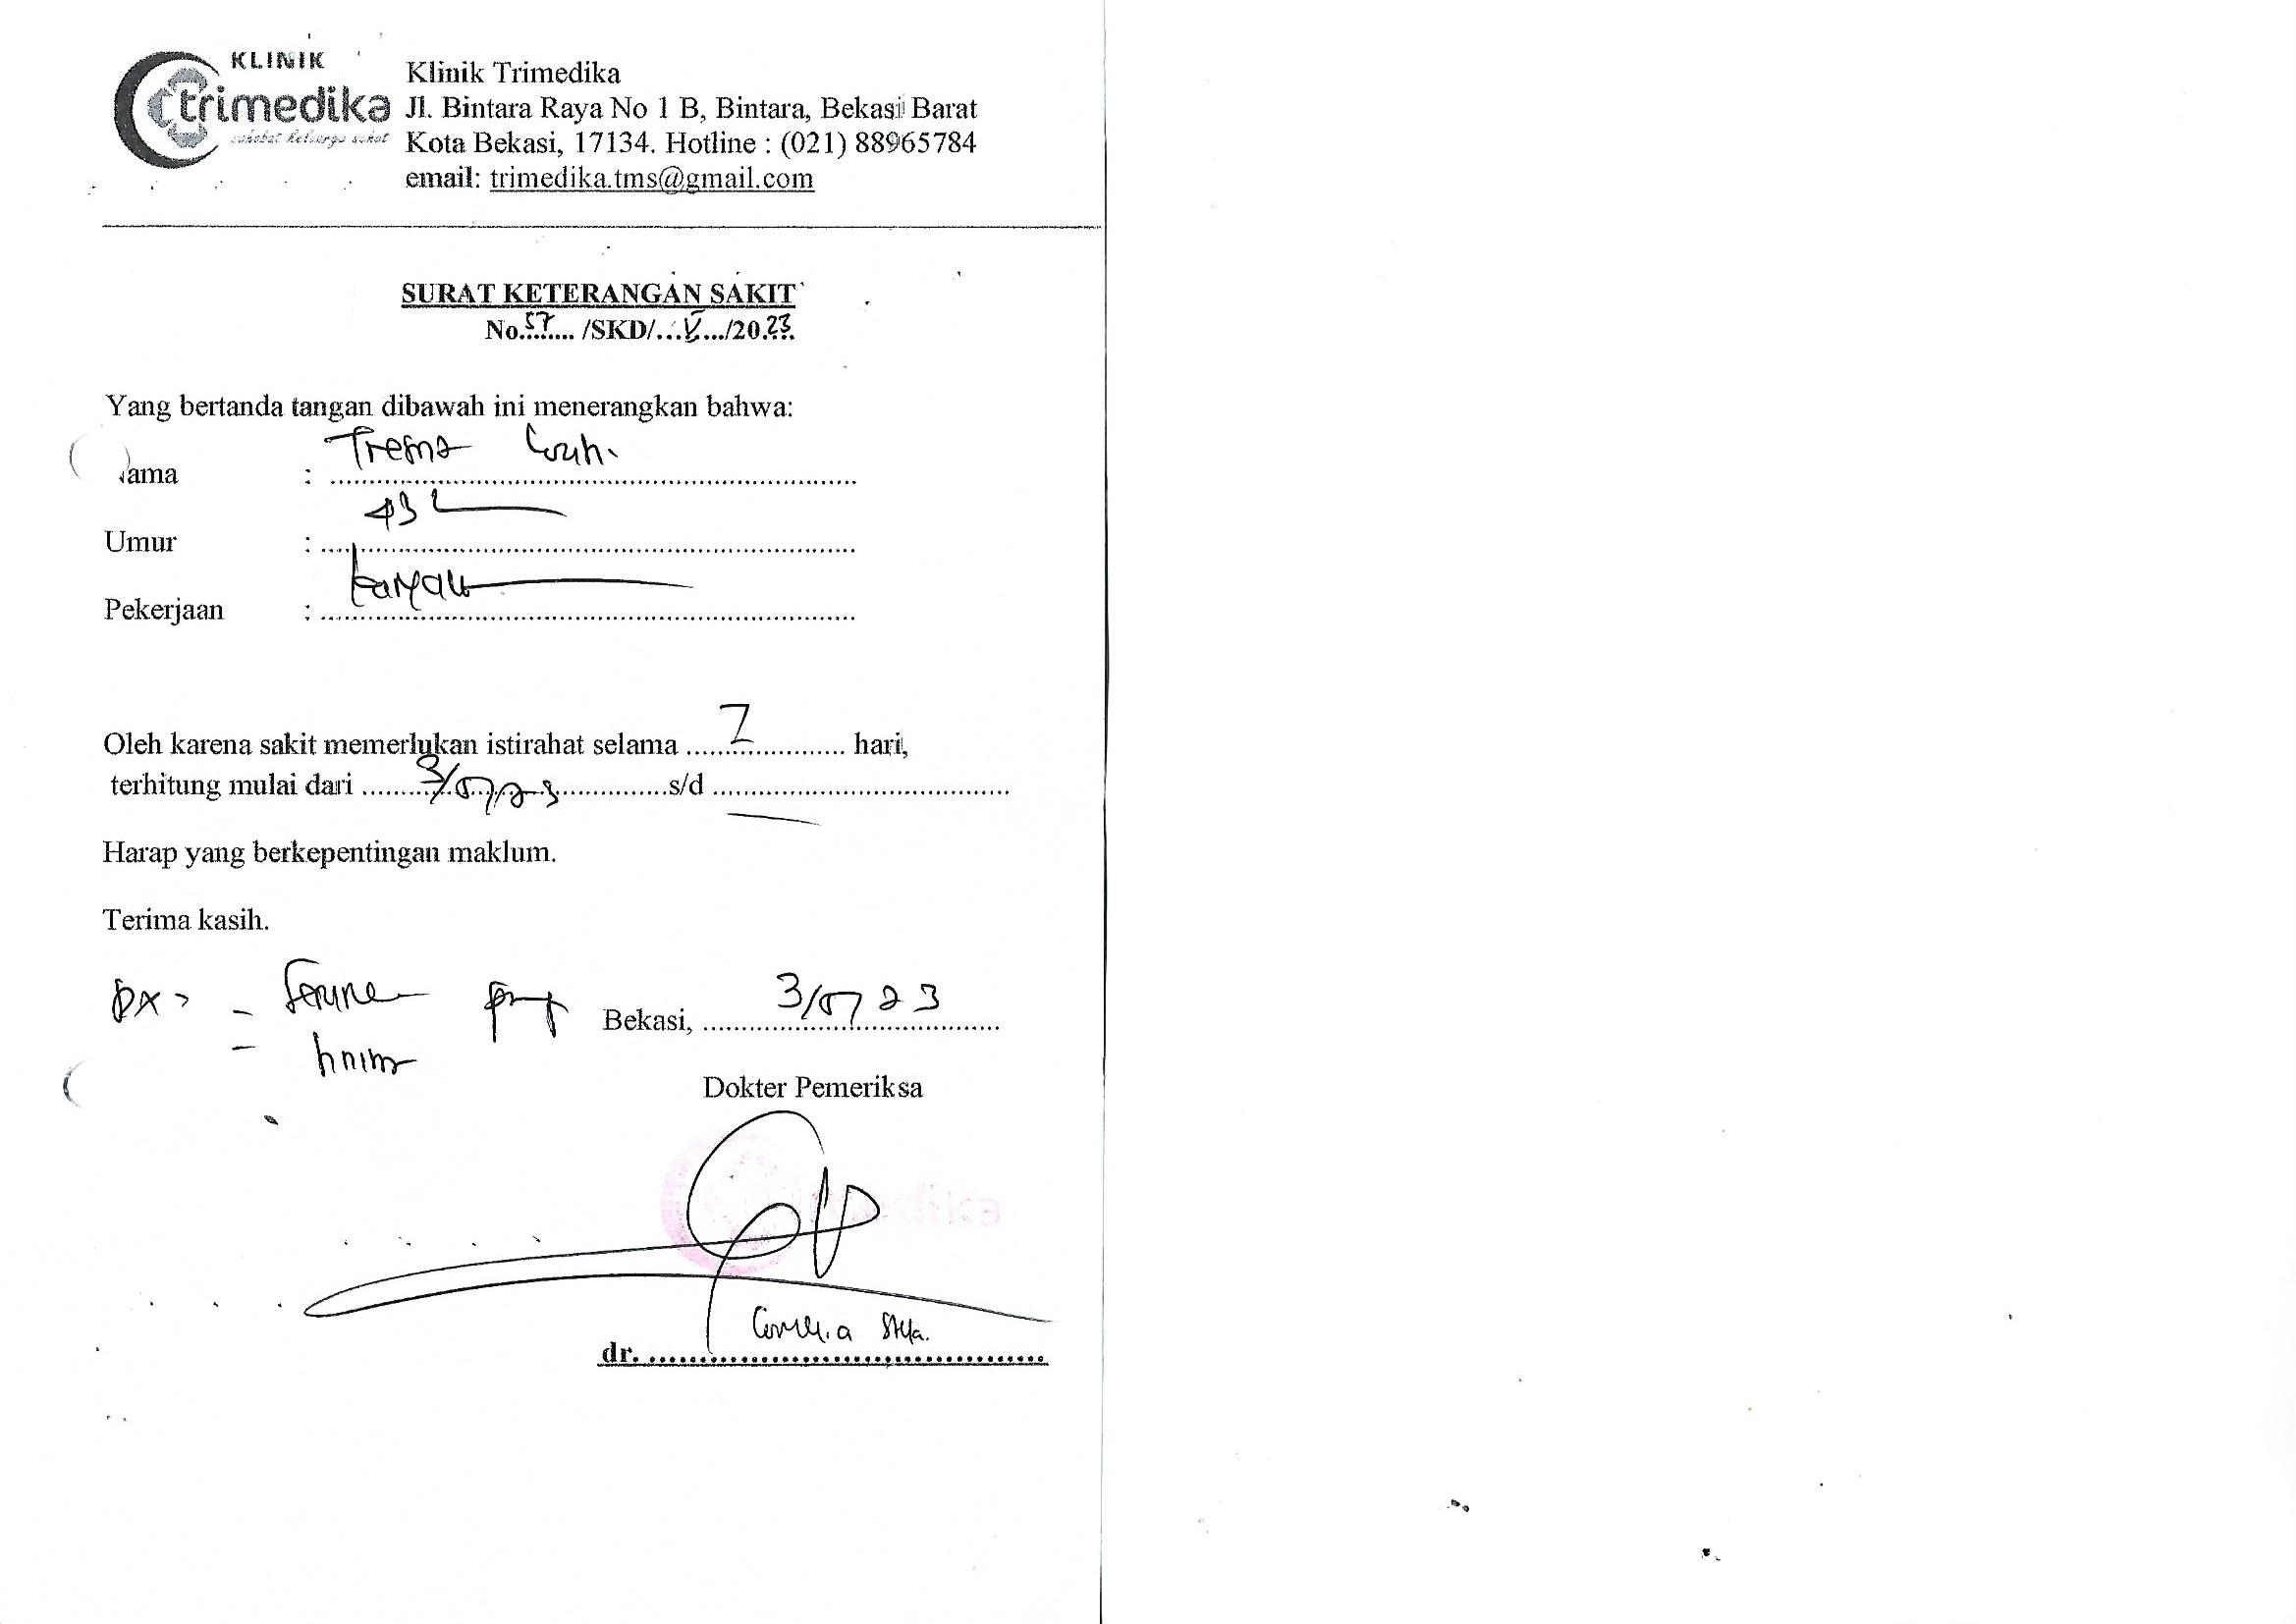 KLINIK
trimedika
sahabat keluarga sehat
Klinik Trimedika
Jl. Bintara Raya No 1 B, Bintara, Bekasi Barat
Kota Bekasi, 17134. Hotline : (021) 88965784
email: trimedika.tms@gmail.com
SURAT KETERANGAN SAKIT
No.57.... /SKD/...V.../2023
Yang bertanda tangan dibawah ini menerangkan bahwa:
ama : Tresna
Umur : 43
Pekerjaan :
Oleh karena sakit memerlukan istirahat selama ........ hari,
terhitung mulai dari ........3/05/23........s/d ........
Harap yang berkepentingan maklum.
Terima kasih.
DX
Bekasi, 3/05/23
Dokter Pemeriksa
dr.